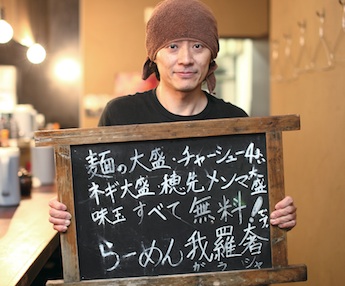 麺の大盛・チャーシュー4枚
ネギ大盛・穂先メンマ大盛
味玉 すべて 無料!
らーめん 我羅奢
がラシャ